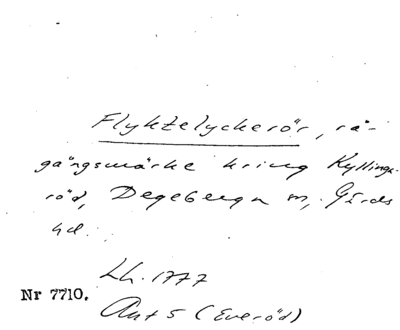 Flyktelyckerör, rå-
gångsmärke kring Kyllinga-
röd, Degeberga m, Gärds
hd.
Lh. 1777
Nr 7710.
Akt 5 (Everöd)